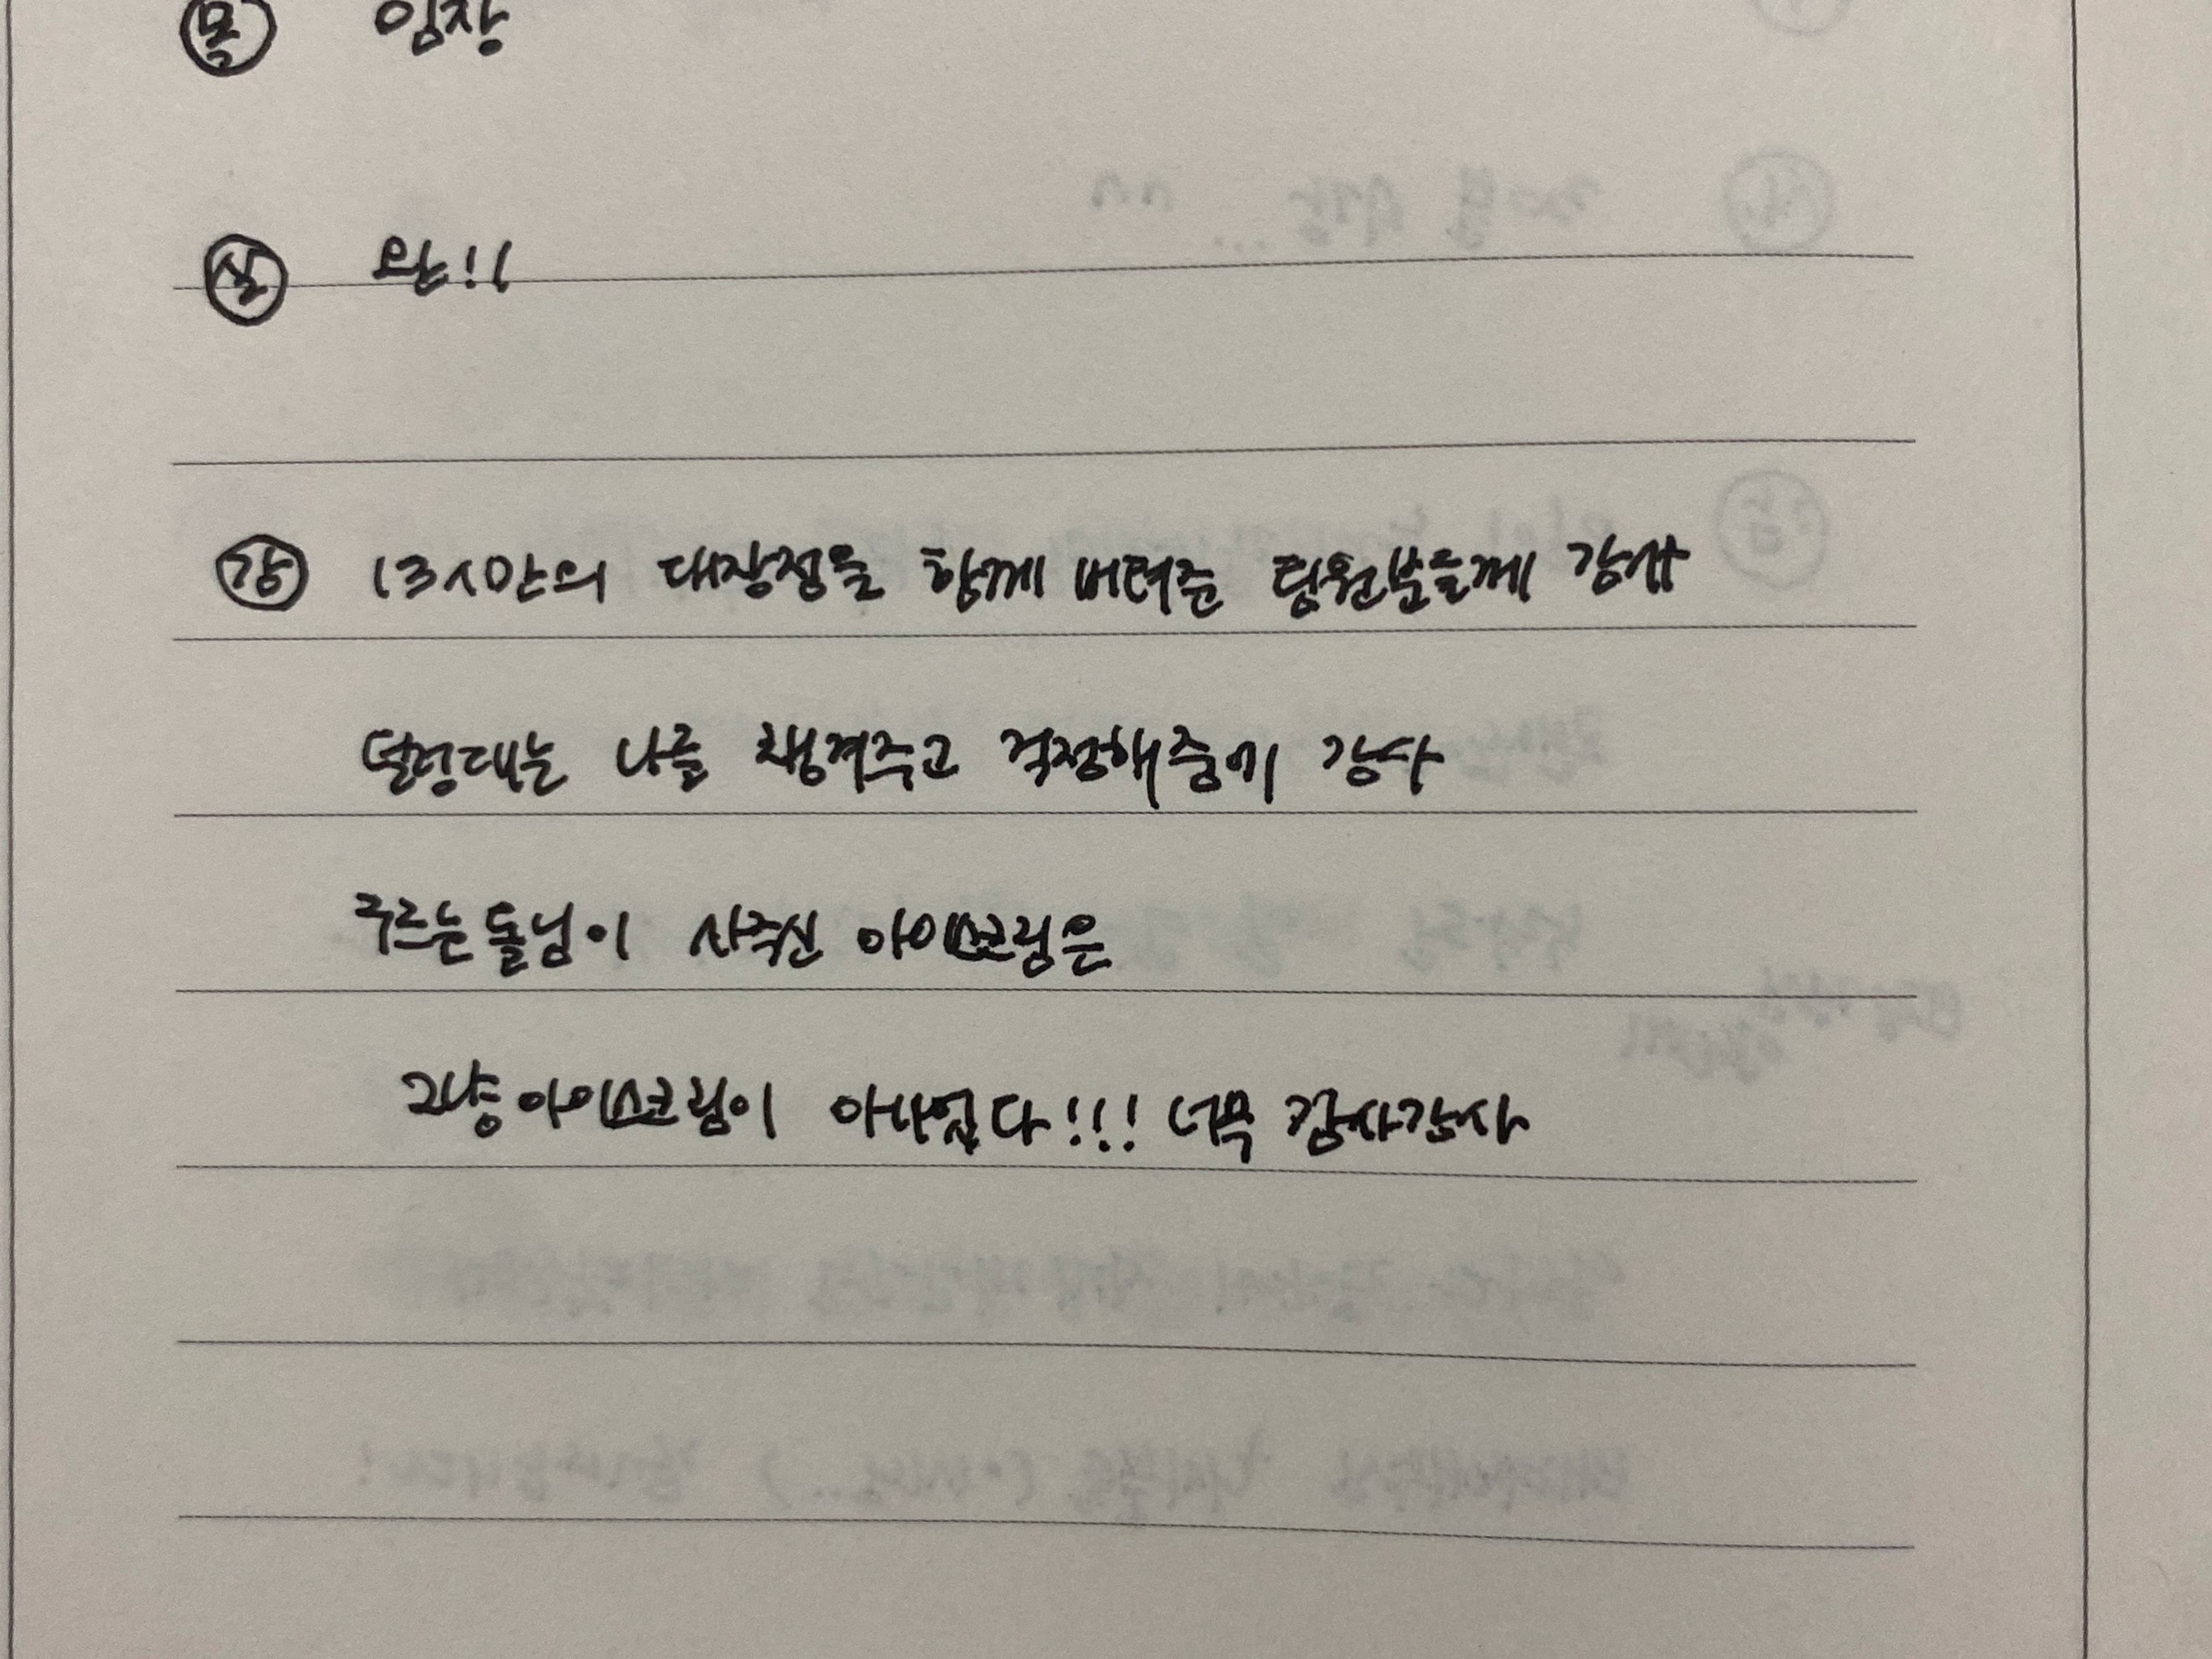 목 임장
실 와!!
감 13시간의 대장정을 함께 버텨준 팀원분들께 감사
덜렁대는 나를 챙겨주고 걱정해줌에 감사
구르는돌님이 사주신 아이스크림은
그냥 아이스크림이 아니었다!!! 너무 감사감사